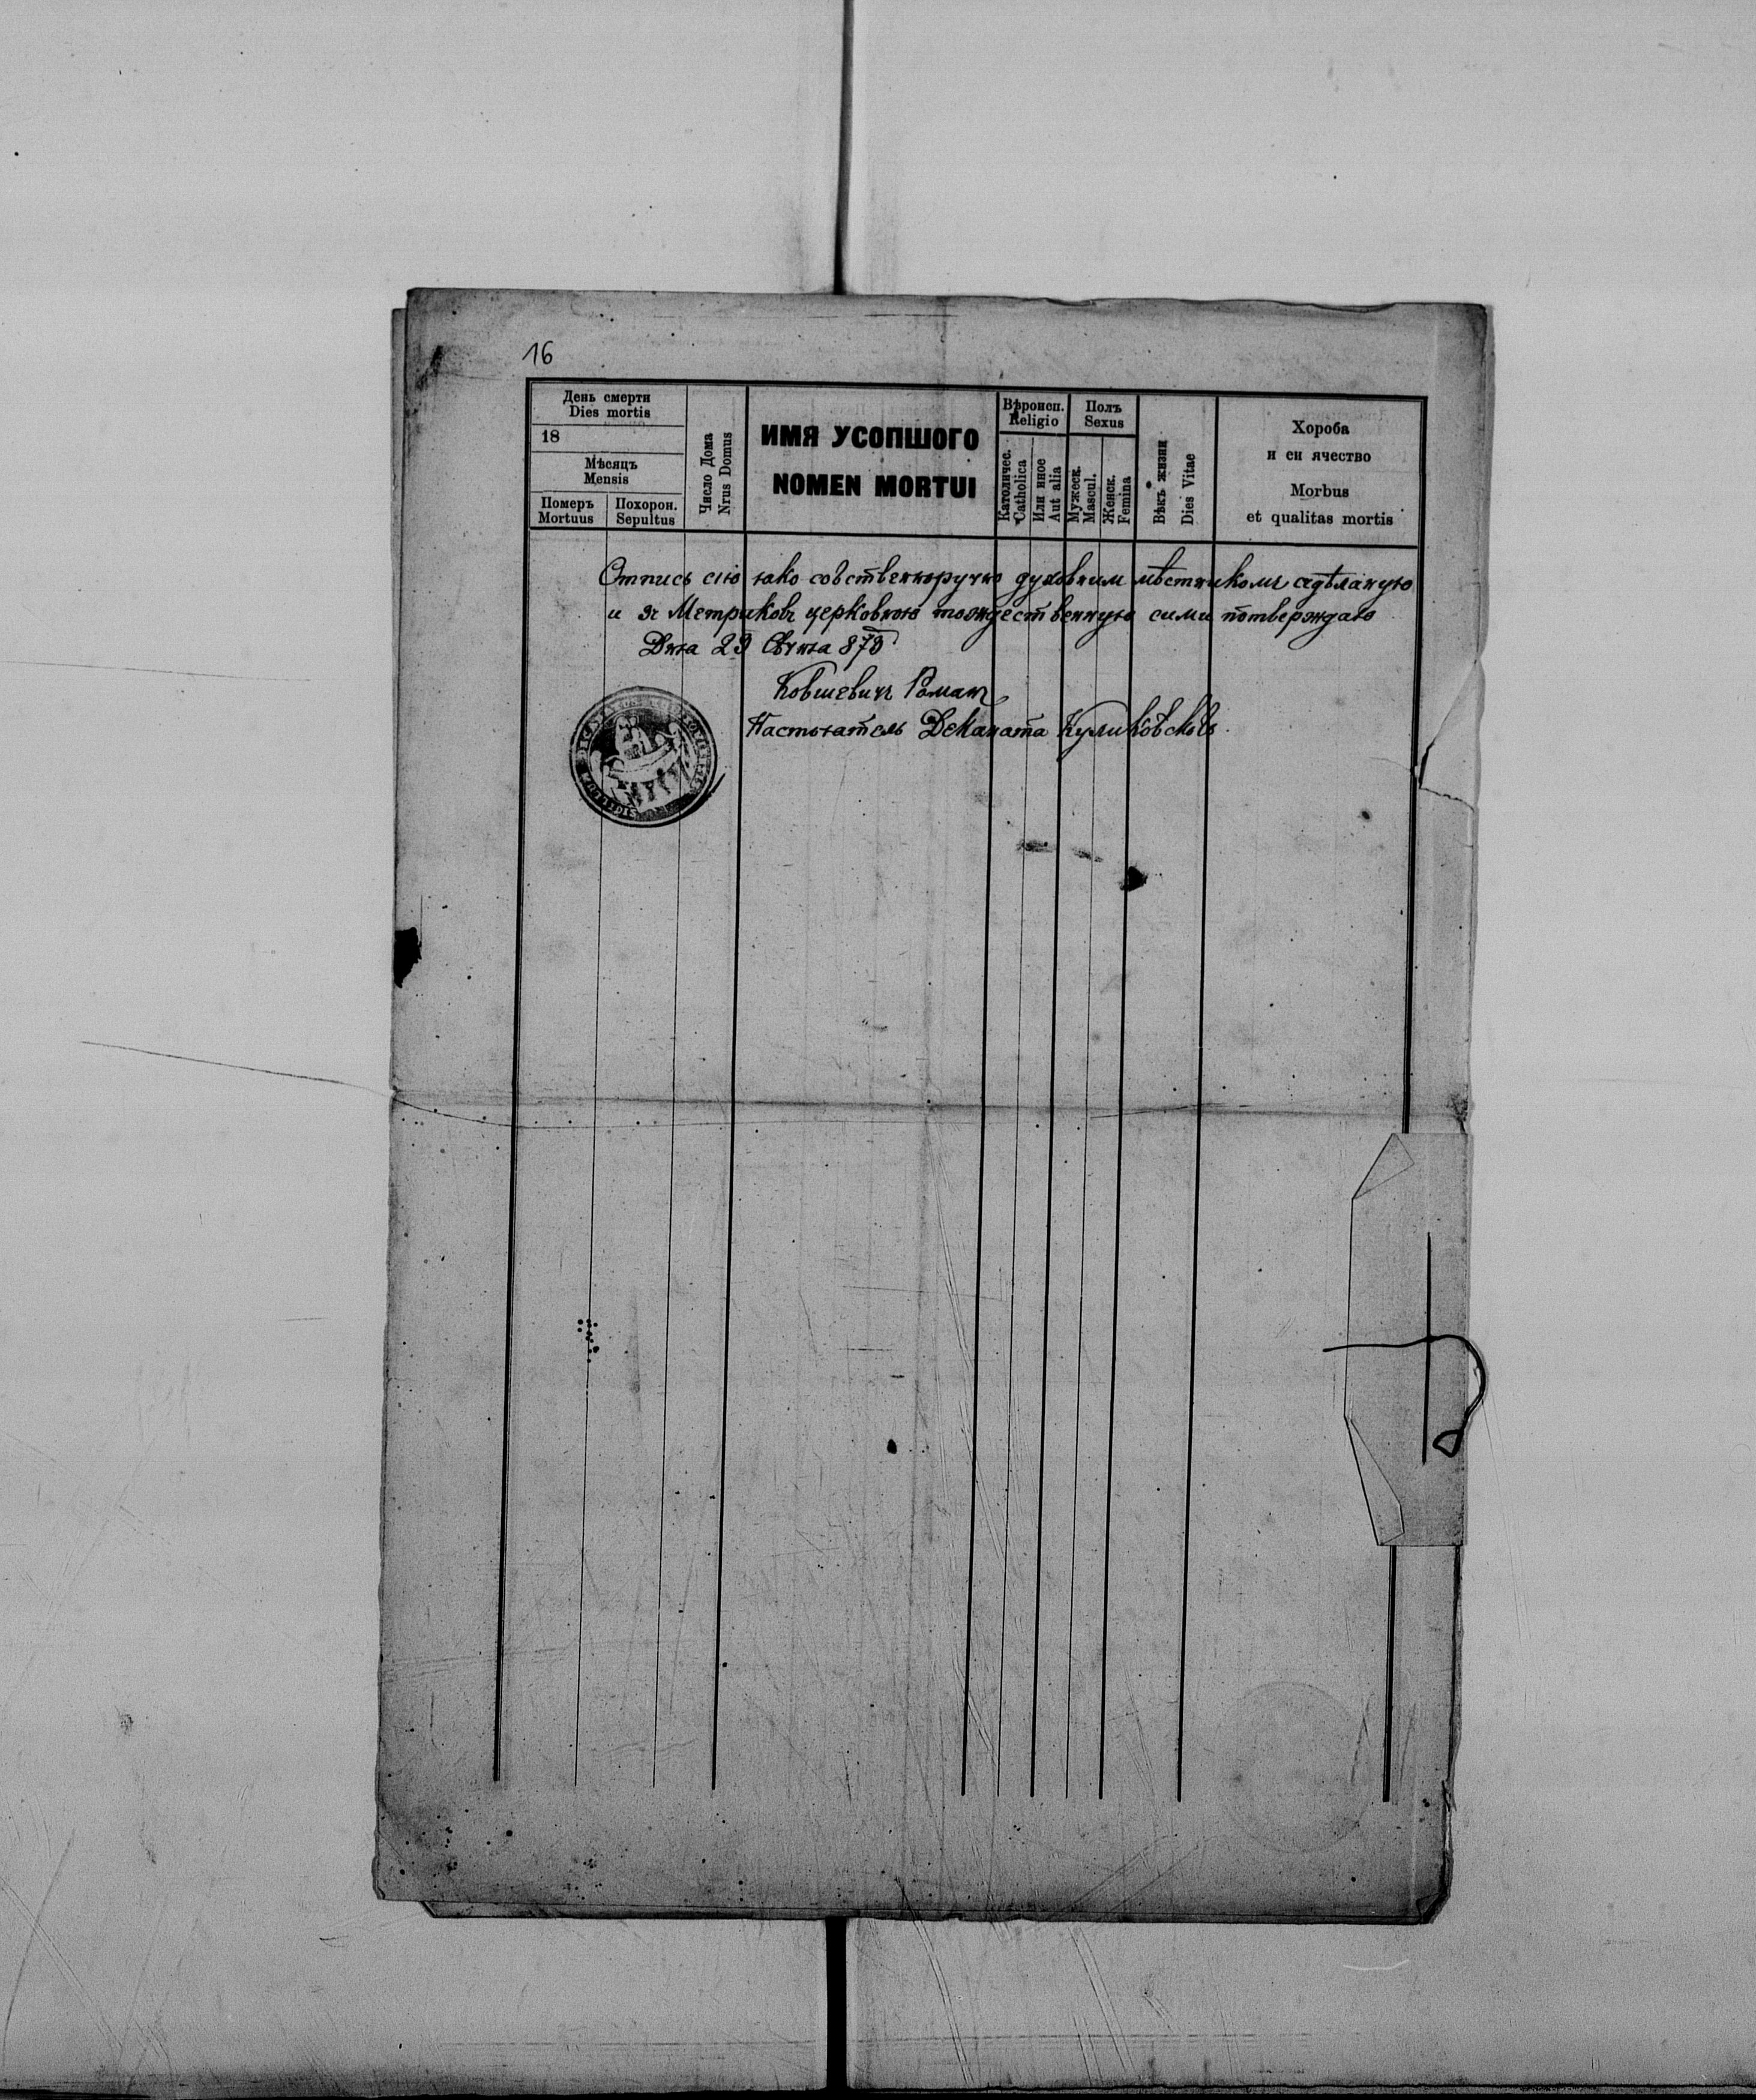 16
День смерти
Dies mortis
18
Мѣсяцъ
Mensis
Померъ
Mortuus
Похорон.
Sepultus
Число Дома
Nrus Domus
ИМЯ УСОПШОГО
NOMEN MORTUI
Вѣроисп.
Religio
Католичес.
Catholica
Или иное
Aut alia
Полъ
Sexus
Мужеск.
Mascul.
Женск.
Femina
Вѣкъ жизни
Dies Vitae
Хороба
и еи ячество
Morbus
et qualitas mortis
Отпись сію яко собственноручно духовним мѣстникомъ сдѣланую
и зъ Метриковъ церковною тождественную симъ потверждаю
Дня 29 Сѣчня 873
Ковшевичъ Романъ
Настоятель Деканата Куликовского